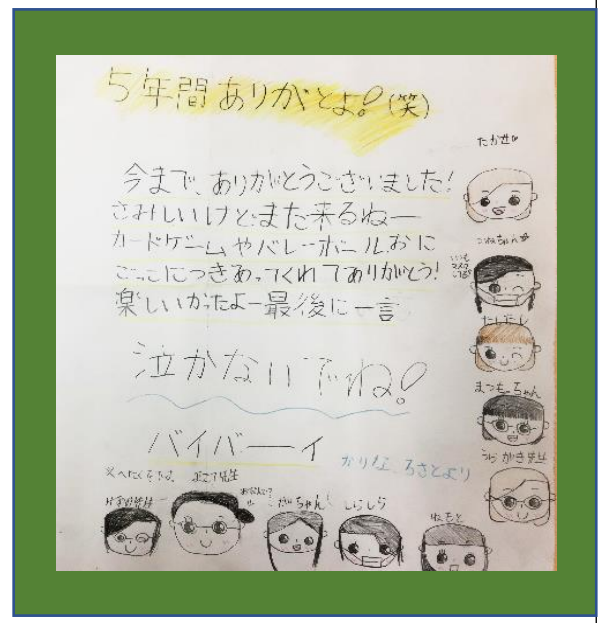 5年間ありがとよ!(笑)
今まで、ありがとうございました!
さみしいけどまた来るねー
カードゲームやバレーボールおに
ごっこにつきあってくれてありがとう!
楽しいかったよー最後に一言
泣かないでね!
バイバーイ
かりな、ちさとより
たかせ
こねちゃん
いつも
マスク
してる
たしたし
まつもちゃん
うらがき先生
がちゃん
しらしら
ねもと